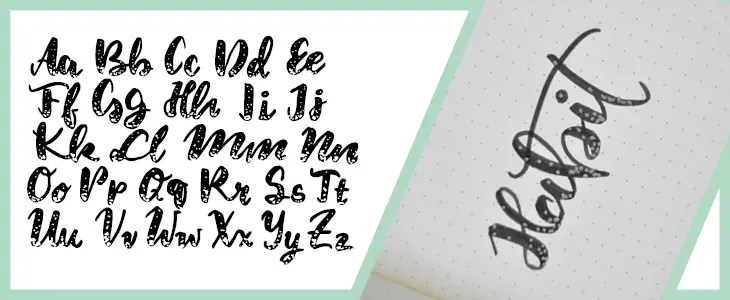 Aa Bb Cc Dd Ee
Ff Gg Hh Ii Jj
Kk Ll Mm Nn
Oo Pp Qq Rr Ss Tt
Uu Vv Ww Xx Yy Zz
Habit